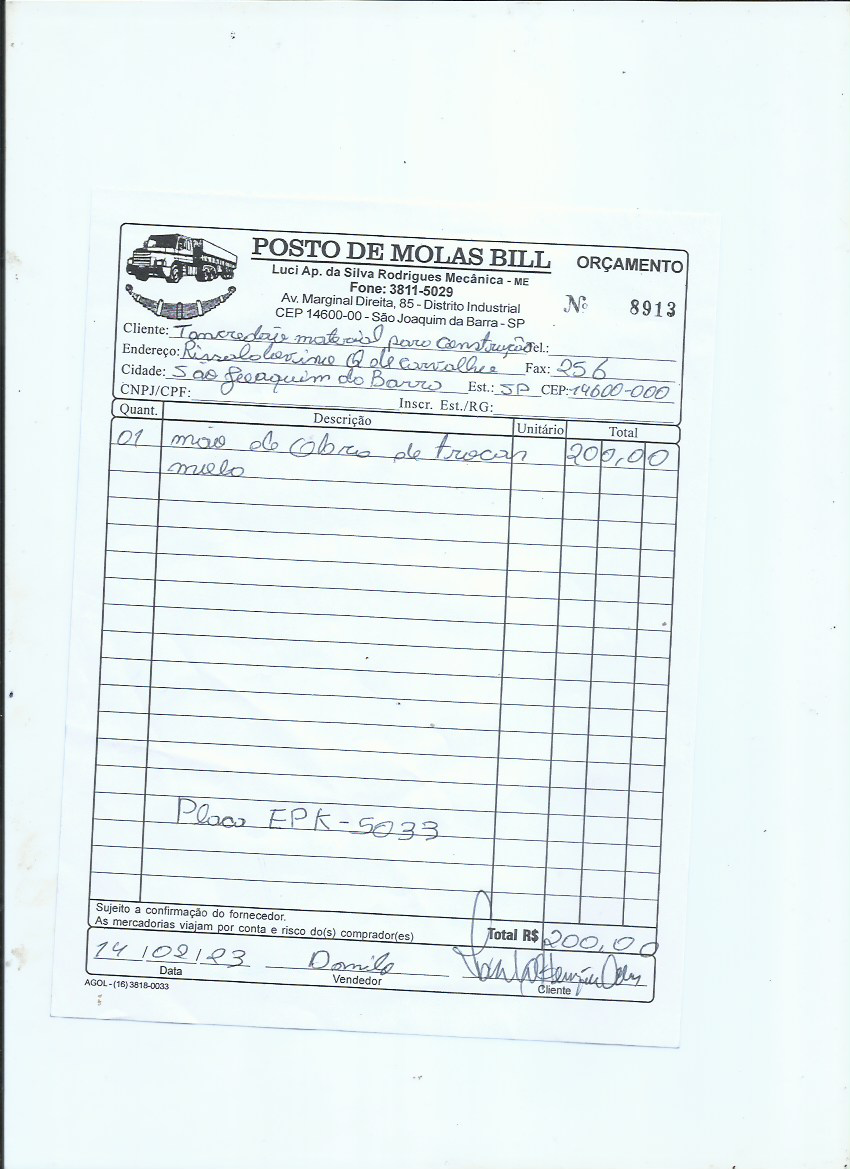 POSTO DE MOLAS BILL
ORÇAMENTO
Luci Ap. da Silva Rodrigues Mecânica - ME
Fone: 3811-5029
Av. Marginal Direita, 85 - Distrito Industrial
CEP 14600-00 - São Joaquim da Barra - SP
Nº 8913
Cliente: material para construção Tel.:
Endereço: de carvalho Fax: 256
Cidade: São Joaquim da Barra Est.: SP CEP: 14600-000
CNPJ/CPF: Inscr. Est./RG:
Quant. Descrição Unitário Total
01 mão de Obra de trocar 200,00
mola
Placa EPK-5033
Sujeito a confirmação do fornecedor.
As mercadorias viajam por conta e risco do(s) comprador(es)
Total R$ 200,00
14/02/23 Danilo
Data Vendedor Cliente
AGOL - (16) 3818-0033